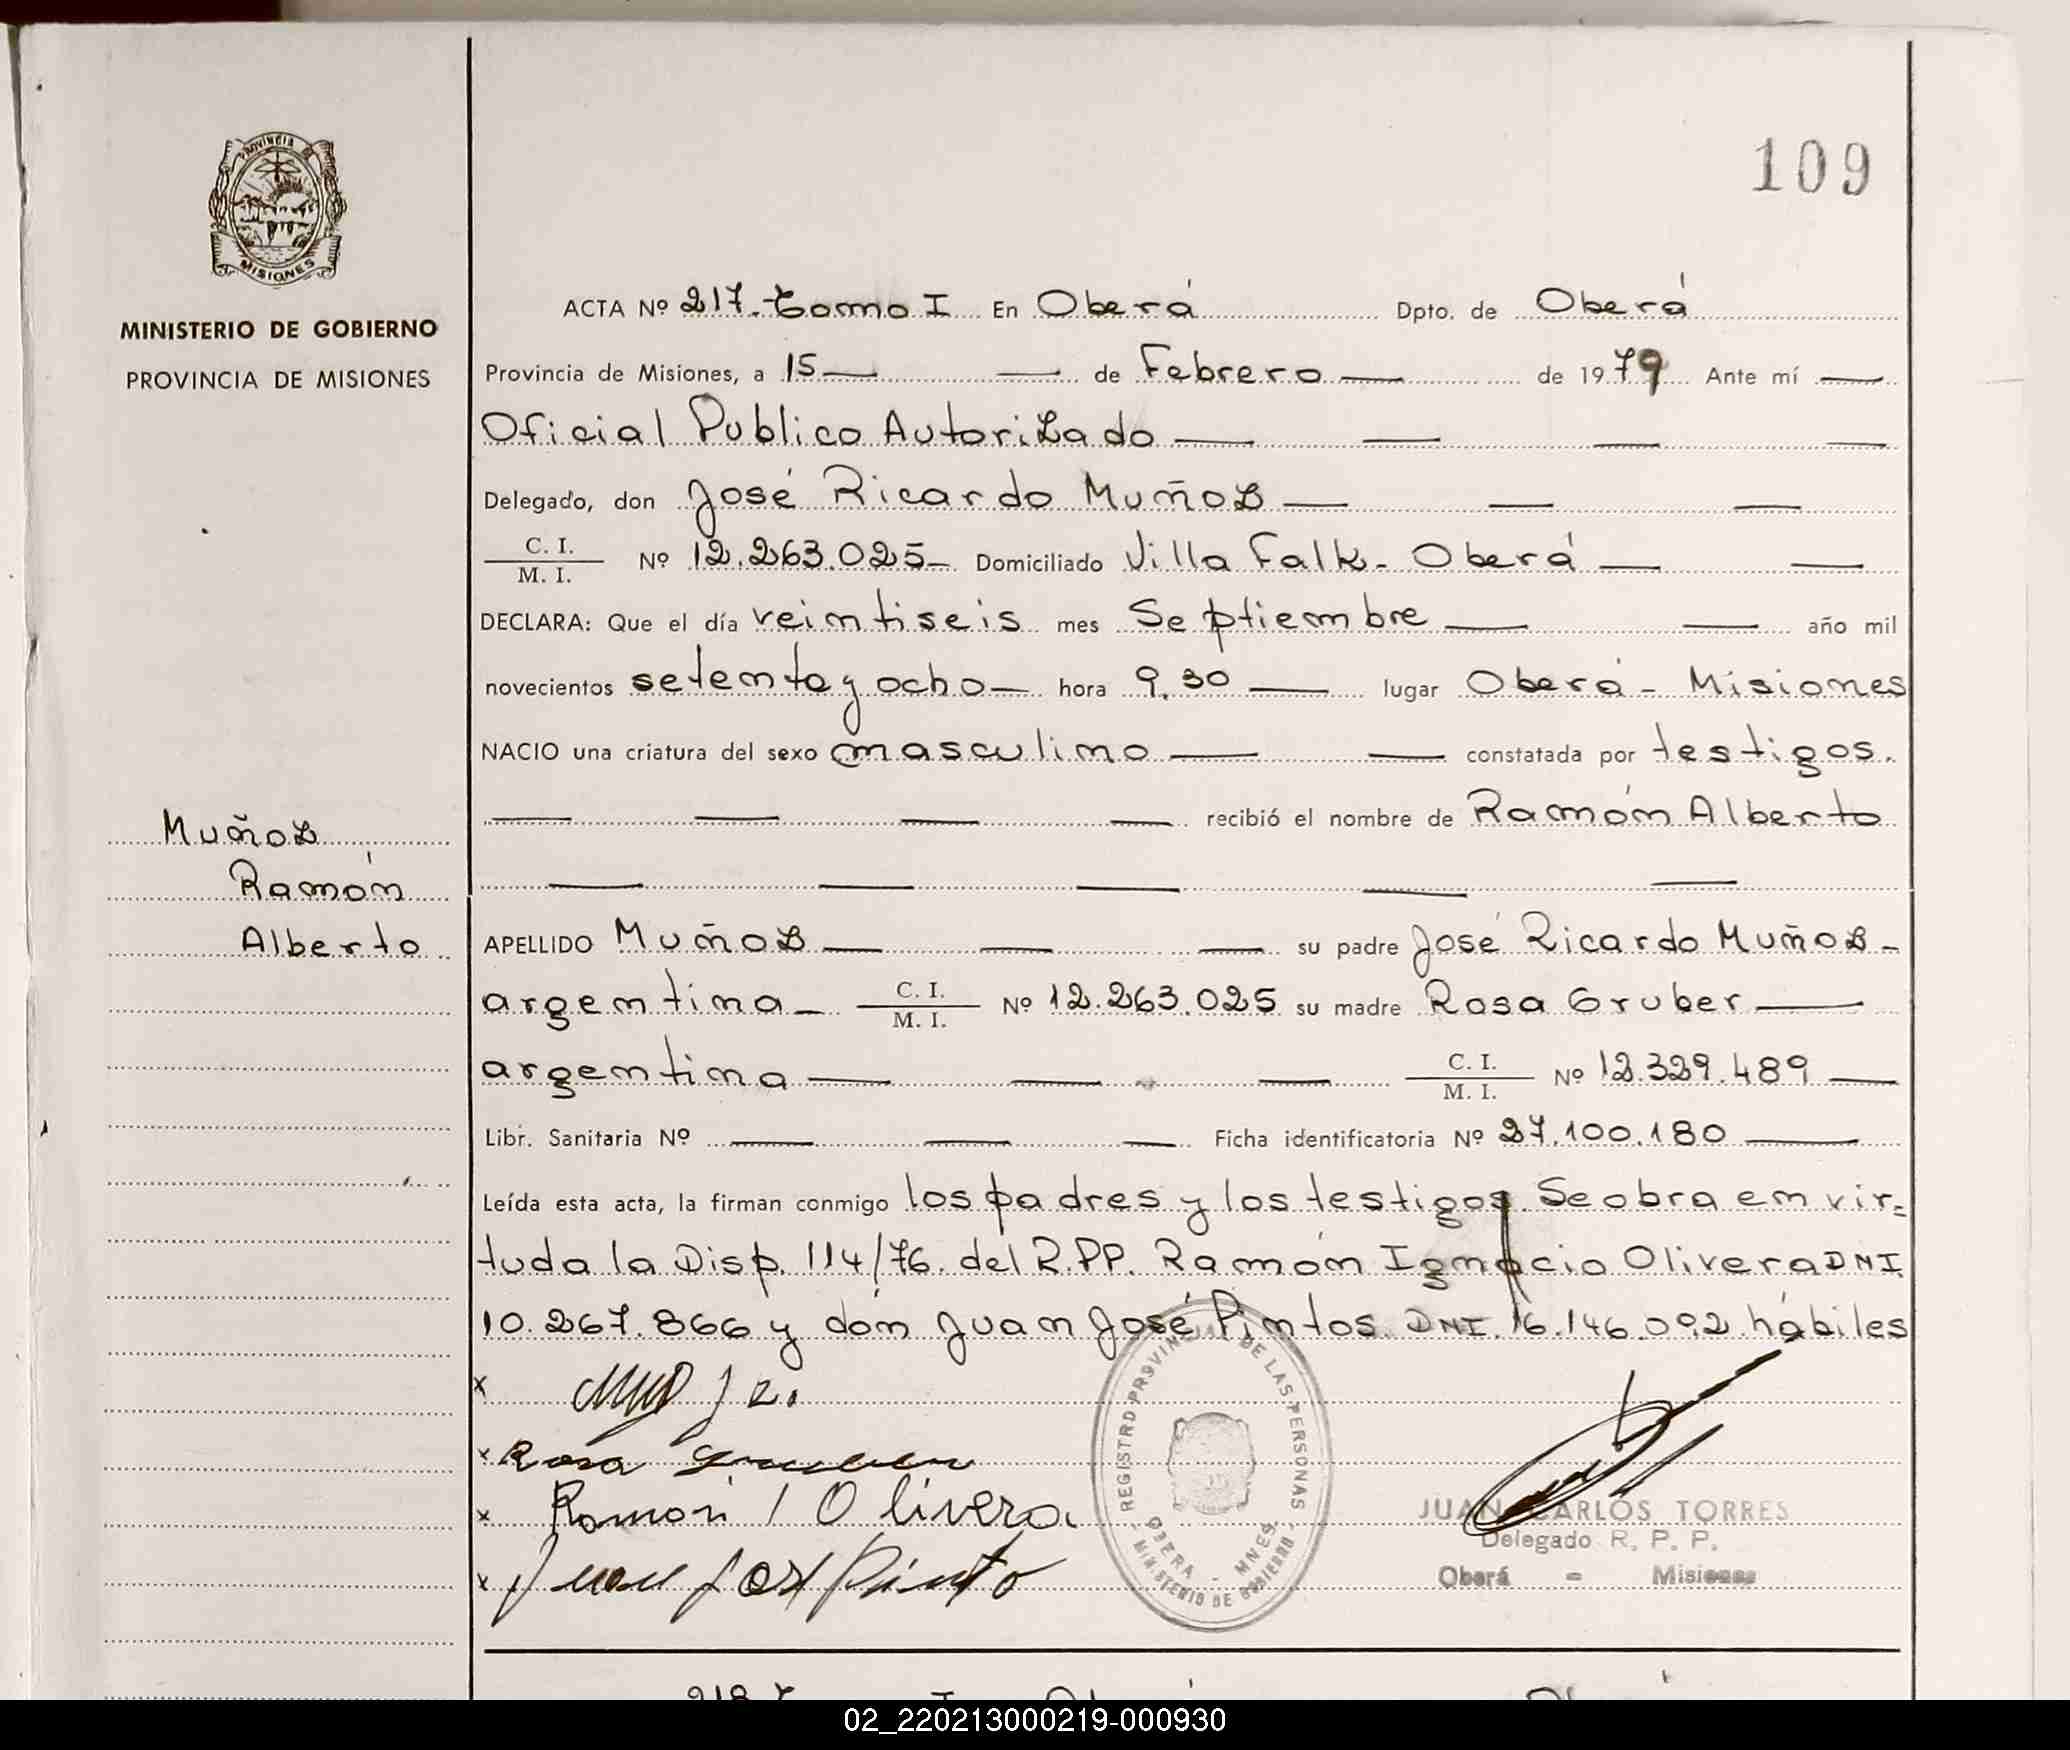 109
PROVINCIA
MISIONES
MINISTERIO DE GOBIERNO
PROVINCIA DE MISIONES
ACTA Nº 217. Tomo I En Oberá Dpto. de Oberá
Provincia de Misiones, a 15 de Febrero de 1979 Ante mí
Oficial Publico Autorizado
Delegado, don José Ricardo Muñoz
C. I.
M. I.
Nº 12.263.025 Domiciliado Villa Falk - Oberá
DECLARA: Que el día veintiseis mes Septiembre año mil
novecientos setenta y ocho hora 9.30 lugar Oberá - Misiones
NACIO una criatura del sexo masculino constatada por testigos.
recibió el nombre de Ramón Alberto
Muñoz
Ramón
Alberto
APELLIDO Muñoz su padre José Ricardo Muñoz
argentina C. I.
M. I.
Nº 12.263.025 su madre Rosa Gruber
argentina C. I.
M. I.
Nº 12.329.489
Libr. Sanitaria Nº Ficha identificatoria Nº 27.100.180
Leída esta acta, la firman conmigo los padres y los testigos. Se obra en vir=
tud a la Disp. 114/76. del R.PP. Ramón Ignacio Olivera DNI.
10.267.866 y dón Juan José Pintos DNI. 16.146.092 hábiles
x
x Rosa Gruber
x Ramon I Olivera.
x Juan José Pinto
REGISTRO PROVINCIAL DE LAS PERSONAS
OBERA - MNES.
- MINISTERIO DE GOBIERNO -
JUAN CARLOS TORRES
Delegado R. P. P.
Oberá - Misiones
02_220213000219-000930